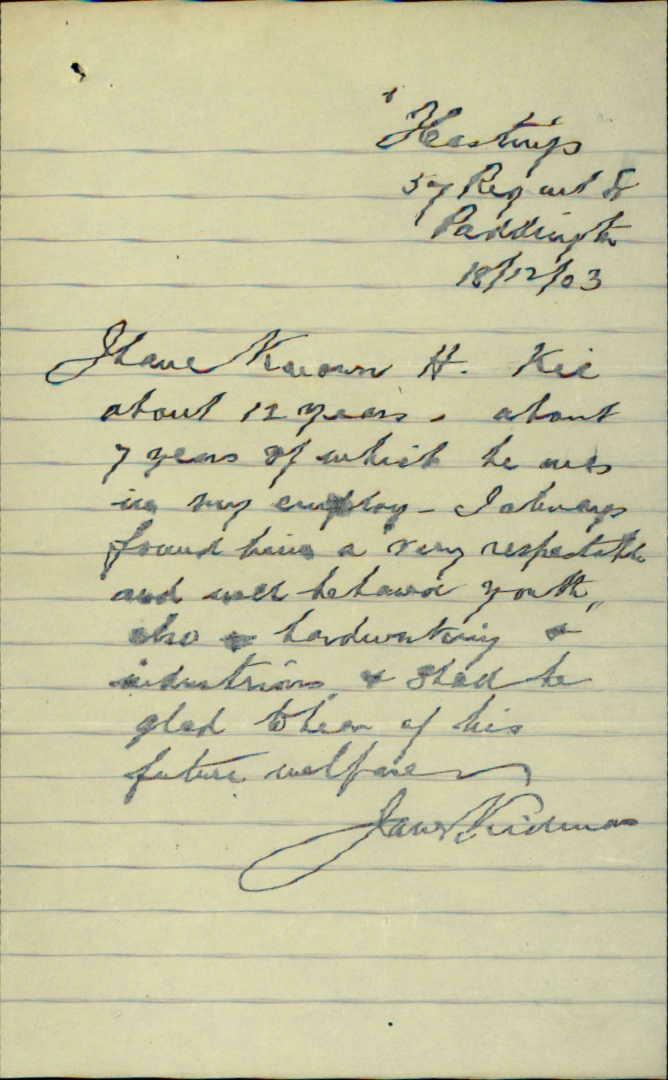 Hastings
57 Regent St
Paddington
18/12/03
I have Known H. Kee
about 12 years, about
7 years of which he was
in my employ - I always
found him a very respectable
and well behaved youth,
also hardworking &
industrious & shall be
glad to hear of his
future welfare
Kidman